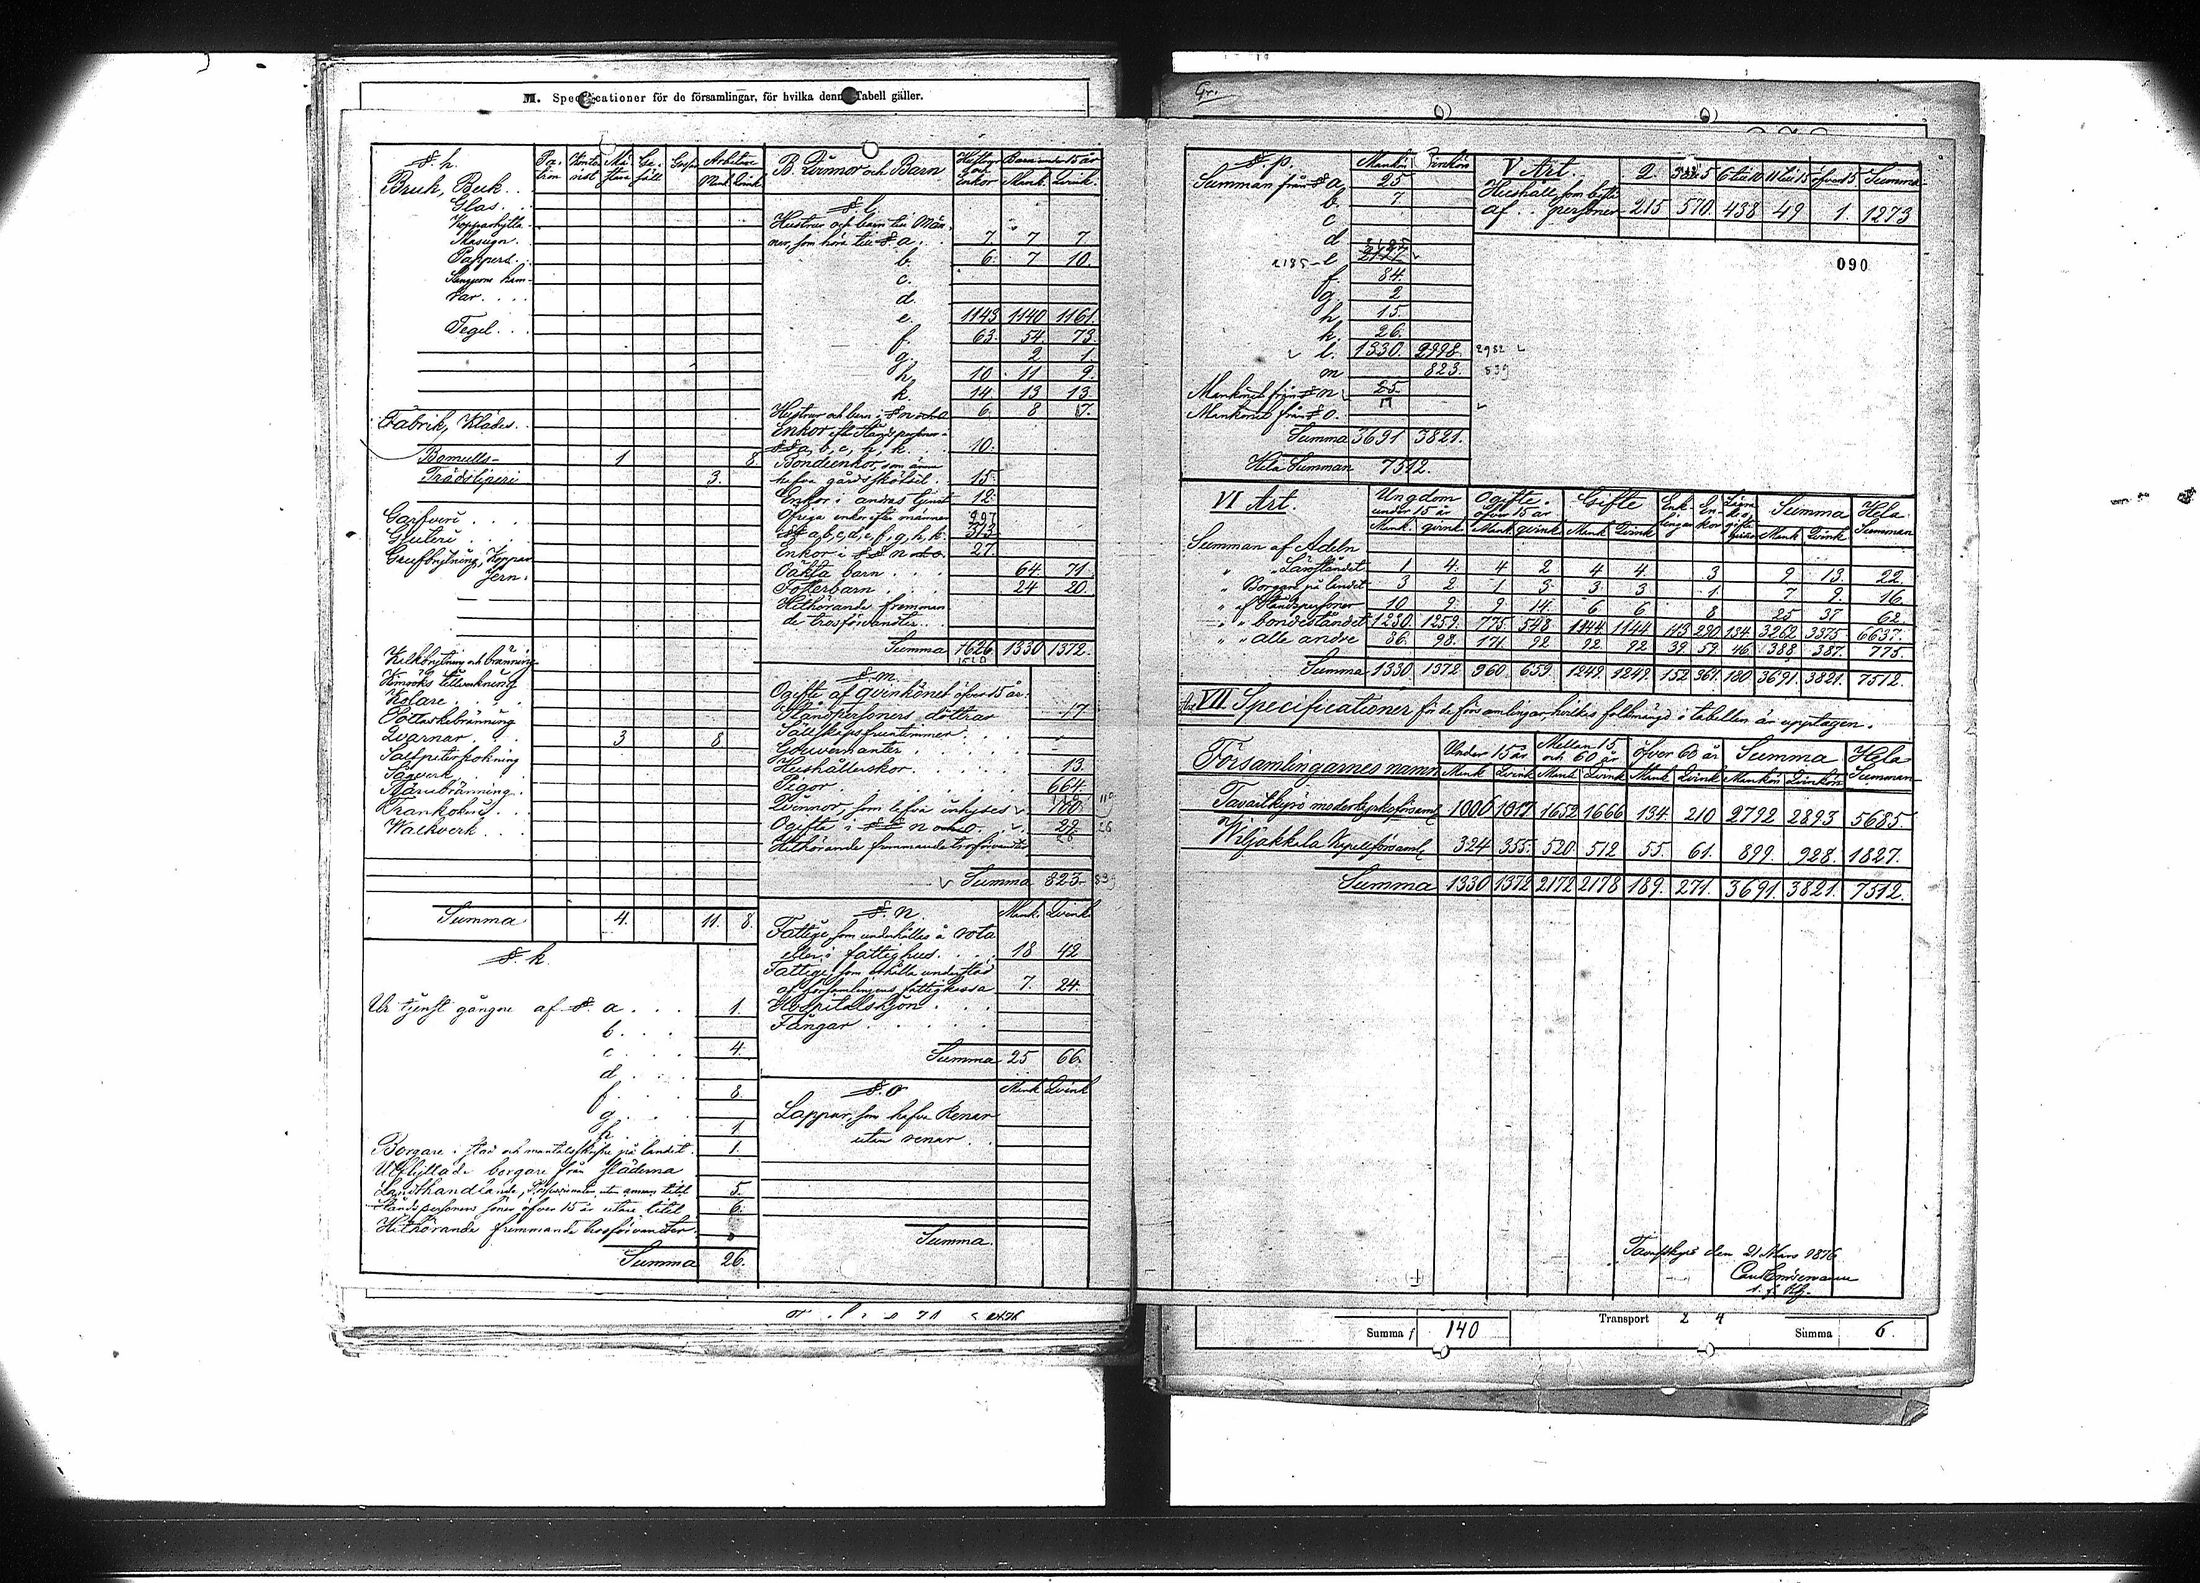 M. Specificationer för de församlingar, för hvilka denna Tabell gäller.
§ h.
Mästare Gesäll Arbetare
Mank. Qvink.
Bruk, Beck . .
Glas. . .
Kopparhytta.
Masugn. .
Pappers. .
Tegel. . .
Fabrik, Klädes. .
Bomulls- 1 8
Trädsliperi 3.
Garfveri . . .
Gjuteri . . .
Grufbrytning, Koppar
Jern.
Kalkbrytning och bränning
Kolare . . .
Pottaskebränning
Qvarnar . . . 3 8
Saltpetersjokning
Sågverk . . .
Tjärubränning.
Trankokeri . . .
Walkverk . . .
Summa 4. 11. 8.
§. k.
Ur tjenst gångne af §. a . . . 1.
b . . .
c . . . 4.
d . . .
f . . . 8.
g . . .
h . . . 1
Borgare i stad och mantalsskrifne på landet. 1.
Utflyttade borgare från städerna
Landthandlande, Possessionater utan annan titel 5.
Ståndspersoners söner öfver 15 år utan titel 6.
Hithörande fremmande trosförvandter.
Summa 26.
B. Qvinnor och Barn
Hustrur och Enkor Barn under 15 år
Mank. Qvink.
§. l.
Hustrur och barn till Män-
ner, som höra till § a. . 7. 7 7
b. 6. 7 10.
c.
d.
e. 1143 1140 1161.
f. 63. 54. 73.
g. 2 1.
h. 10 11 9.
k. 14 13 13.
Hustrur och barn i § n och o 6. 8 7.
Enkor efter Ståndspersoner-
§§ a, b, c, h, k. . . 10.
Bondeenkor, som ännu
hafva gårdsskötsel. 15.
Enkor i andras tjenst 12.
Öfriga enkor efter männen 297
§§ a, b, c, d, e, f, g, h, k. 313
Enkor i §§ n och o. 27.
Oäkta barn . . . 64. 71.
Fosterbarn . . . 24 20.
Hithörande fremman
de trosförvandter. .
Summa 1626 1330 1372.
1610
§. m.
Ogifte af qvinkönet öfver 15 år.
Ståndspersoners döttrar 17
Sällskapsfruntimmer . . .
Gouvernanter . . . . .
Hushållerskor. . . . . 13.
Pigor . . . . . 664.
Qvinnor, som lefva inhyses 100 110
Ogifta i §§ n och o. . 29. 26
Hithörande fremmande trosförvandter
Summa 823. 839
§. n. Mank. Qvink.
Fattige som underhållas å rota
eller i fattighus. . . . 18 42
Fattige, som erhålla understöd
af församlingens fattigkassa 7. 24.
Hospitalshjon . . .
Fångar . . . . .
Summa 25 66.
§. o Mank. Qvink.
Lappar, som hafva Renar
utan renar . .
Summa.
Gr.
§. p. Mankön Qvinkön
Summan från § a 25
b. 7.
c
d
2185 – e 2127.
f. 84.
g. 2
h. 15.
k. 26.
l. 1330. 2998. 2982
m 823. 839
Mankönet från § n 25.
Mankönet från § o.
Summa 3691 3821.
Hela Summan 7512.
V Art. 2. 3 till 5 6 till 10 11 till 15 öfver 15 Summa
Hushåll som bestå
af . . personer 215 570. 438 49 1. 1273
090
VI Art. Ungdom under 15 år Ogifte öfver 15 år Gifte Enklingar Enkor Summa Hela Summan
Mank. qvink. Mank qvink. Mank Qvink Mank Qvink
Summan af Adeln
" " Lärostândet 1 4. 4 2 4 4 3 9 13. 22.
" " Borgare på landet 3 2 1 3 3 3 1. 7 9. 16.
" af Ståndspersoner 10 9. 9 14. 6 6 8 25 37 62.
" " bondeståndet 1230. 1259. 775 548 1144 1144 113 290 134. 3262 3375 6637.
" " alle andre 86. 98. 171. 92 92 92 39 59. 46 388 387. 775.
Summa 1330 1372 960 659 1249. 1249. 152 361. 180 3691. 3821. 7512.
VII. Specificationer för de församlingar, hvilkas folkmängd i tabellen är upptagen.
Församlingarnes namn Under 15 år Mellan 15 och 60 år öfver 60 år Summa Hela Summan
Mank Qvink Mank Qvink Mank Qvink Mankön Qvinkön
Tavastkyrö moderkyrkoförsaml 1006 1017 1652 1666 134. 210 2792 2893 5685.
Wiljakkala Kapellförsaml 324 355. 520 512 55. 61. 899. 928. 1827.
Summa 1330 1372 2172 2178 189. 271. 3691. 3821. 7512.
Tavastkyrö den 21 Mars 1876
Summa 140 Transport 2 4 Summa 6